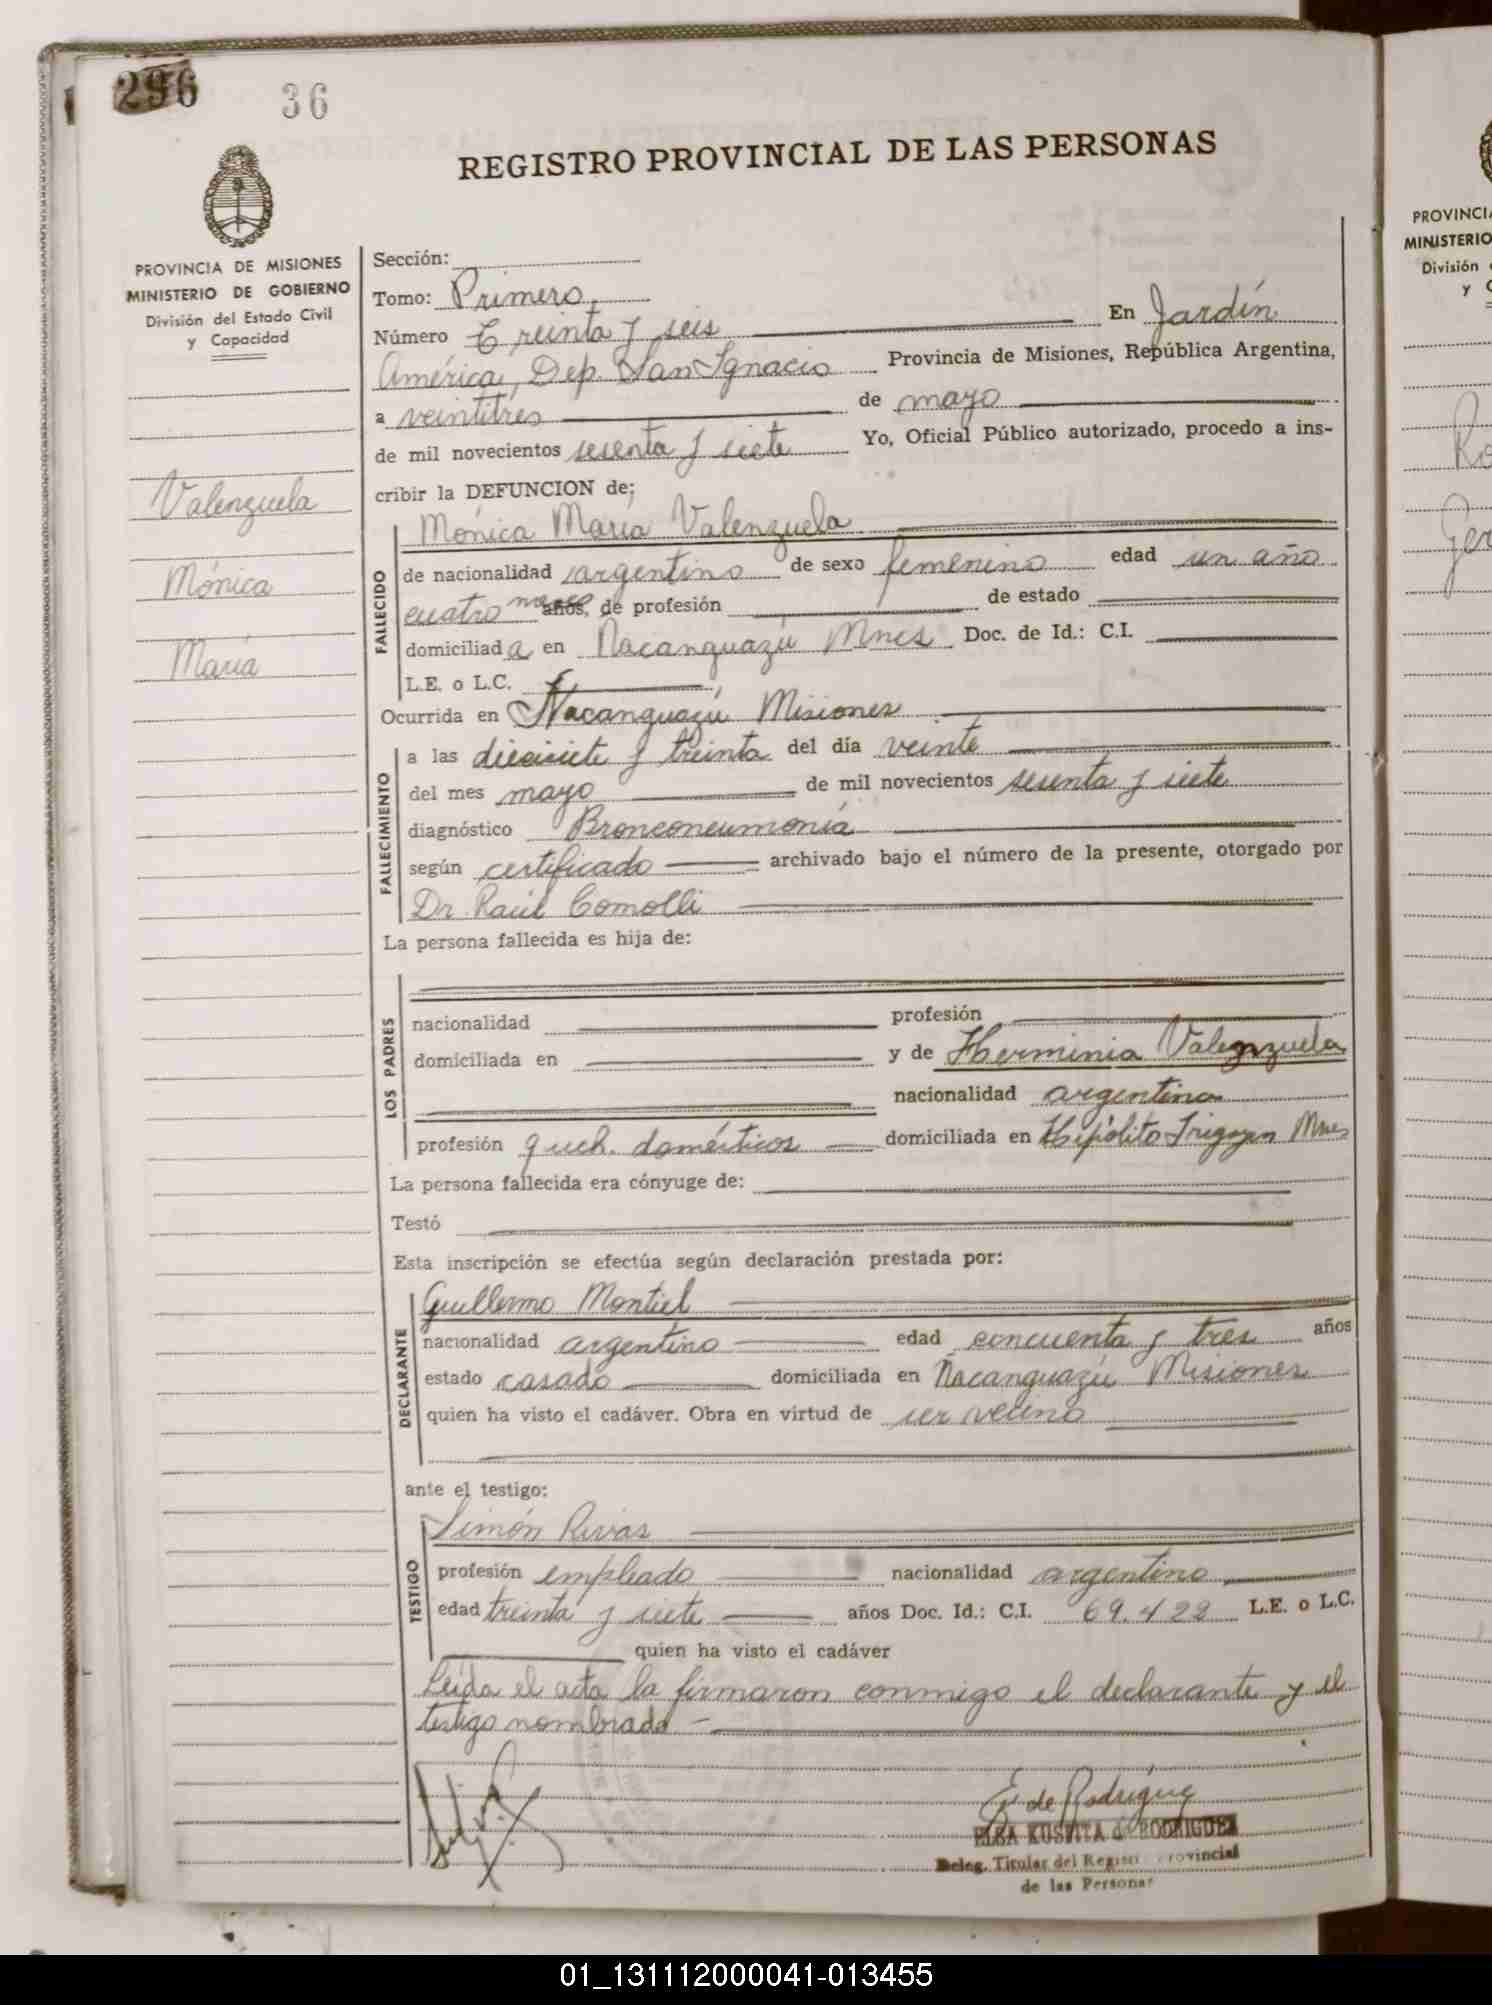 296 36
REGISTRO PROVINCIAL DE LAS PERSONAS
PROVINCIA DE MISIONES
MINISTERIO DE GOBIERNO
División del Estado Civil
y Capacidad
Valenzuela
Mónica
María
Sección:
Tomo: Primero
Número Treinta y seis En Jardín
América, Dep. San Ignacio Provincia de Misiones, República Argentina,
a veintitrés de mayo
de mil novecientos sesenta y siete Yo, Oficial Público autorizado, procedo a ins-
cribir la DEFUNCION de;
FALLECIDO
Mónica María Valenzuela
de nacionalidad argentino de sexo femenino edad un año
cuatro meses años, de profesión de estado
domiciliad a en Ñacanguazú Mnes Doc. de Id.: C.I.
L.E. o L.C.
Ocurrida en Ñacanguazú Misiones
FALLECIMIENTO
a las diecisiete y treinta del día veinte
del mes mayo de mil novecientos sesenta y siete
diagnóstico Bronconeumonía
según certificado archivado bajo el número de la presente, otorgado por
Dr. Raúl Comolli
La persona fallecida es hija de:
LOS PADRES
nacionalidad profesión
domiciliada en y de Herminia Valenzuela
nacionalidad argentina
profesión queh. domésticos domiciliada en Hipólito Irigoyen Mnes
La persona fallecida era cónyuge de:
Testó
Esta inscripción se efectúa según declaración prestada por:
DECLARANTE
Guillermo Montiel
nacionalidad argentino edad concuenta y tres años
estado casado domiciliada en Ñacanguazú Misiones
quien ha visto el cadáver. Obra en virtud de ser vecino
ante el testigo:
TESTIGO
Simón Rivas
profesión empleado nacionalidad argentino
edad treinta y siete años Doc. Id.: C.I. 69.422 L.E. o L.C.
quien ha visto el cadáver
Leída el acta la firmaron conmigo el declarante y el
testigo nombrado -
E. de Rodríguez
ELBA KUSHTA de RODRIGUEZ
Deleg. Titular del Registro Provincial
de las Personas
PROVINCIA
MINISTERIO
División
y C
Ro
Ger
01_131112000041-013455